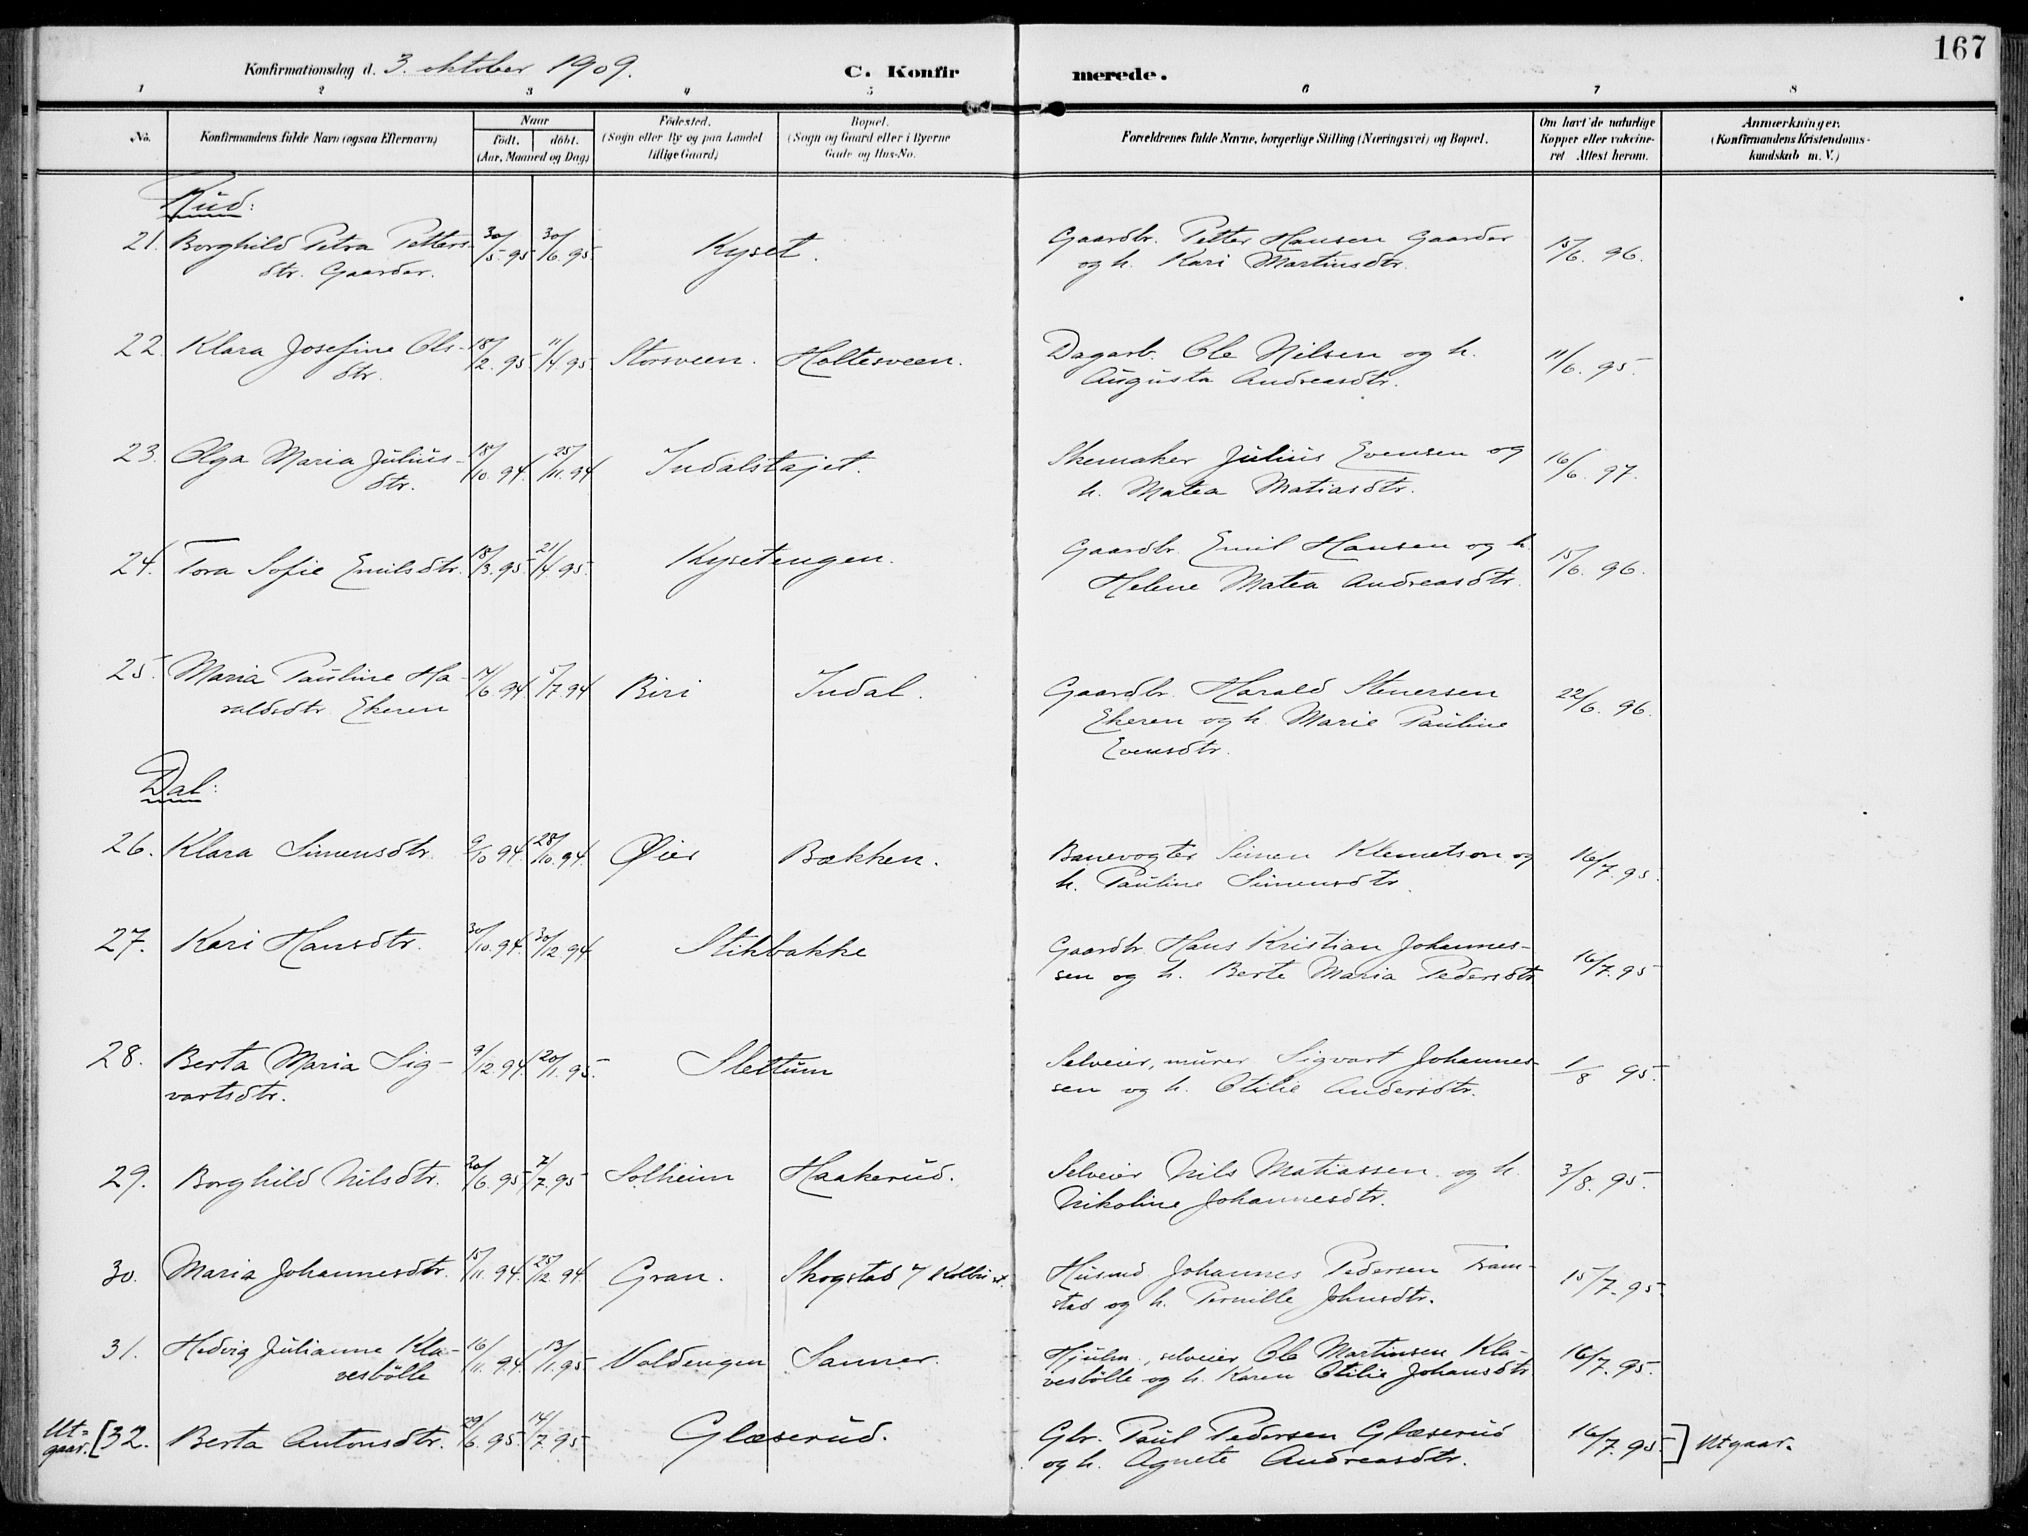 167
Konfirmationsdag d. 3. oktober 1909.
C. Konfir merede.
1 2 3 4 5 6 7 8
No.
Konfirmandens fulde Navn (ogsaa Efternavn)
Naar
født. døbt.
(Aar, Maaned og Dag)
Fødested.
(Sogn eller By og paa Landet
tillige Gaard)
Bopæl.
(Sogn og Gaard eller i Byerne
Gade og Hus-No.
Forældrenes fulde Navne, borgerlige Stilling (Næringsvei) og Bopæl.
Om havt de naturlige
Kopper eller vakcine-
ret Attest herom.
Anmærkninger.
(Konfirmandens Kristendoms-
kundskab m. V.)
Rud:
21. Borghild Petra Petters- 30/5 95 30/6 95. Kyset. Gaardbr. Petter Hansen Gaarder 15/6. 96.
dtr. Gaarder. og h. Kari Martinsdtr.
22. Klara Josefine Ols- 18/2. 95 11/4 95. Storsveen. Holtesveen. Dagarb. Ole Nilsen og h. 11/6. 95.
dtr. Augusta Andreasdtr.
23. Olga Maria Julius- 18/10. 94. 25/11. 94 Indalstajet. Skomaker Julius Evensen og 16/6. 97.
dtr. h. Matea Matiasdtr.
24. Tora Sofie Emilsdtr. 18/3. 95 21/4 95. Kysetengen. Gaardbr. Emil Hansen og h. 15/6. 96.
Helene Matea Andreasdtr.
25. Maria Pauline Ha- 14/6. 94. 5/7. 94 Biri Indal. Gaardbr. Harald Stenersen 22/6. 96.
raldsdtr. Ekeren Ekeren og h. Marie Pauline
Evensdtr.
Dal:
26. Klara Simensdtr. 9/10 94. 28/10. 94. Øier Bækken. Banevogter Simen Klemetson og 16/7. 95.
h. Pauline Simensdtr.
27. Kari Hansdtr. 30/10. 94. 30/12. 94 Stikbakke Gaardbr. Hans Kristian Johannes- 16/7. 95
sen og h. Berte Maria Pedersdtr.
28. Berta Maria Sig- 9/12. 94. 20/1. 95. Slettum Selveier, murer Sigvart Johannes- 1/8 95.
vartsdtr. sen og h. Otilie Andersdtr.
29. Borghild Nilsdtr. 20/6. 95 7/7. 95 Solheim Haakerud. Selveier Nils Matiassen og h. 3/8. 95.
Nikoline Johannesdtr.
30. Maria Johannesdtr. 15/11. 94. 25/12. 94 Gran. Skogstad Husmd. Johannes Pedersen Tram- 15/7. 95
stad og h. Pernille Johnsdtr.
31. Hedvig Julianne Kla- 16/11. 94. 13/1. 95 Voldengen Sanner. Hjulm., selveier Ole Martinsen Kla- 16/7. 95.
vesbölle vesbölle og h. Karen Otilie Johansdtr.
Ut= [32. Berta Antonsdtr. 29/6. 95 14/7. 95 Glæserud. Gbr. Paul Pedersen Glæserud 16/7. 95.] Utgaar.
gaar. og h. Agnete Andreasdtr.